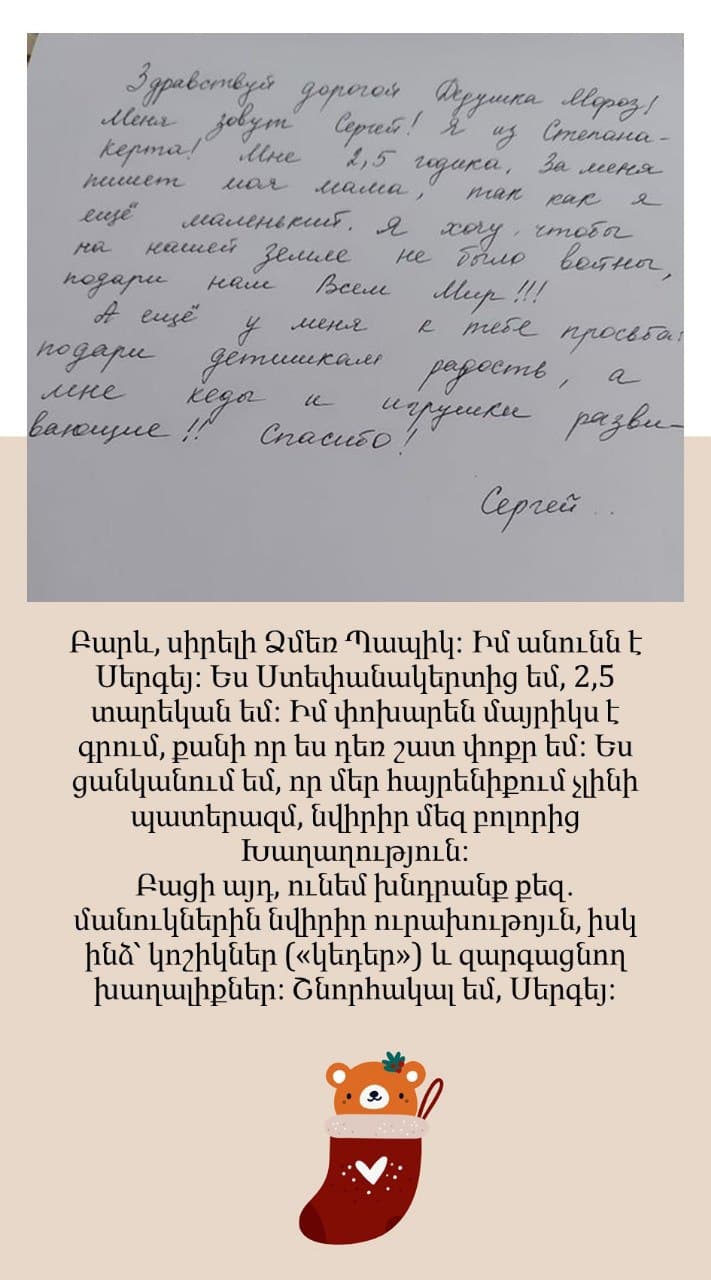 Здравствуй дорогой Дедушка Мороз!
Меня зовут Сергей! Я из Степана-
керта! Мне 2,5 годика. За меня
пишет моя мама, так как я
ещё маленький. Я хочу, чтобы
на нашей Земле не было войны,
подари нам Всем Мир!!!
А ещё у меня к тебе просьба:
подари детишкам радость, а
мне кеды и игрушки разви-
вающие!! Спасибо!
Сергей..
Բարև, սիրելի Ձմեռ Պապիկ: Իմ անունն է
Սերգեյ: Ես Ստեփանակերտից եմ, 2,5
տարեկան եմ: Իմ փոխարեն մայրիկս է
գրում, քանի որ ես դեռ շատ փոքր եմ: Ես
ցանկանում եմ, որ մեր հայրենիքում չլինի
պատերազմ, նվիրիր մեզ բոլորից
Խաղաղություն:
Բացի այդ, ունեմ խնդրանք քեզ.
մանուկներին նվիրիր ուրախութոյւն, իսկ
ինձ՝ կոշիկներ («կեդեր») և զարգացնող
խաղալիքներ: Շնորհակալ եմ, Սերգեյ: